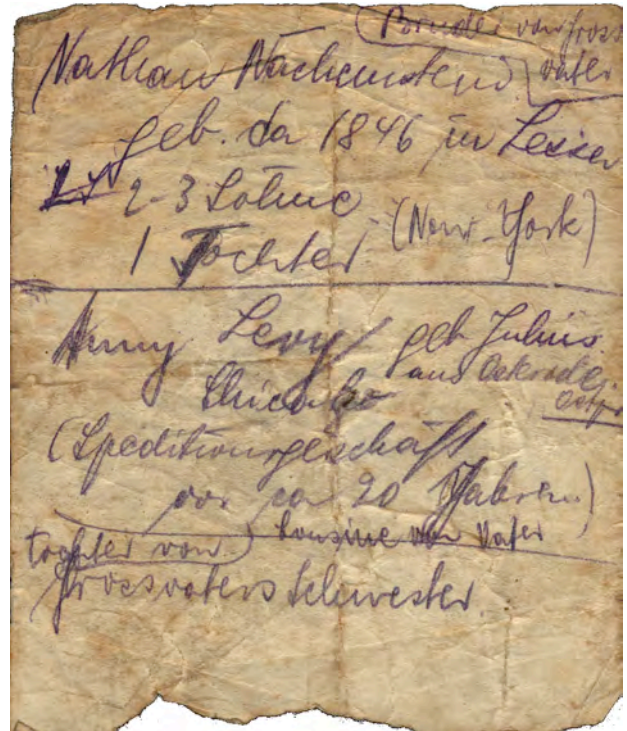 (Bruder von Gross
vater
Nathan Nachemstein)
geb. ca 1846 in Lessen
2-3 Söhne
1 Tochter (New-York)
Anny Levy geb. Julius
aus Osterode
Ostpr
Chicago
(Speditionsgeschäft
vor ca 20 Jahren)
Cousine von Vater
Tochter von
Grossvaters Schwester.